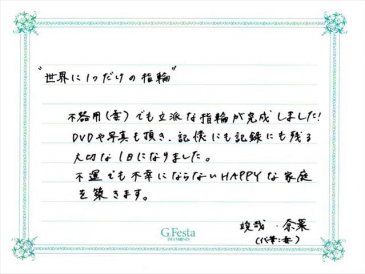 "世界に1つだけの指輪"
不器用(妻)でも立派な指輪が完成しました!
DVDや写真も頂き、記憶にも記録にも残る
大切な1日になりました。
不運でも不幸にならないHAPPYな家庭
を築きます。
奈
(代筆:妻)
G.Festa